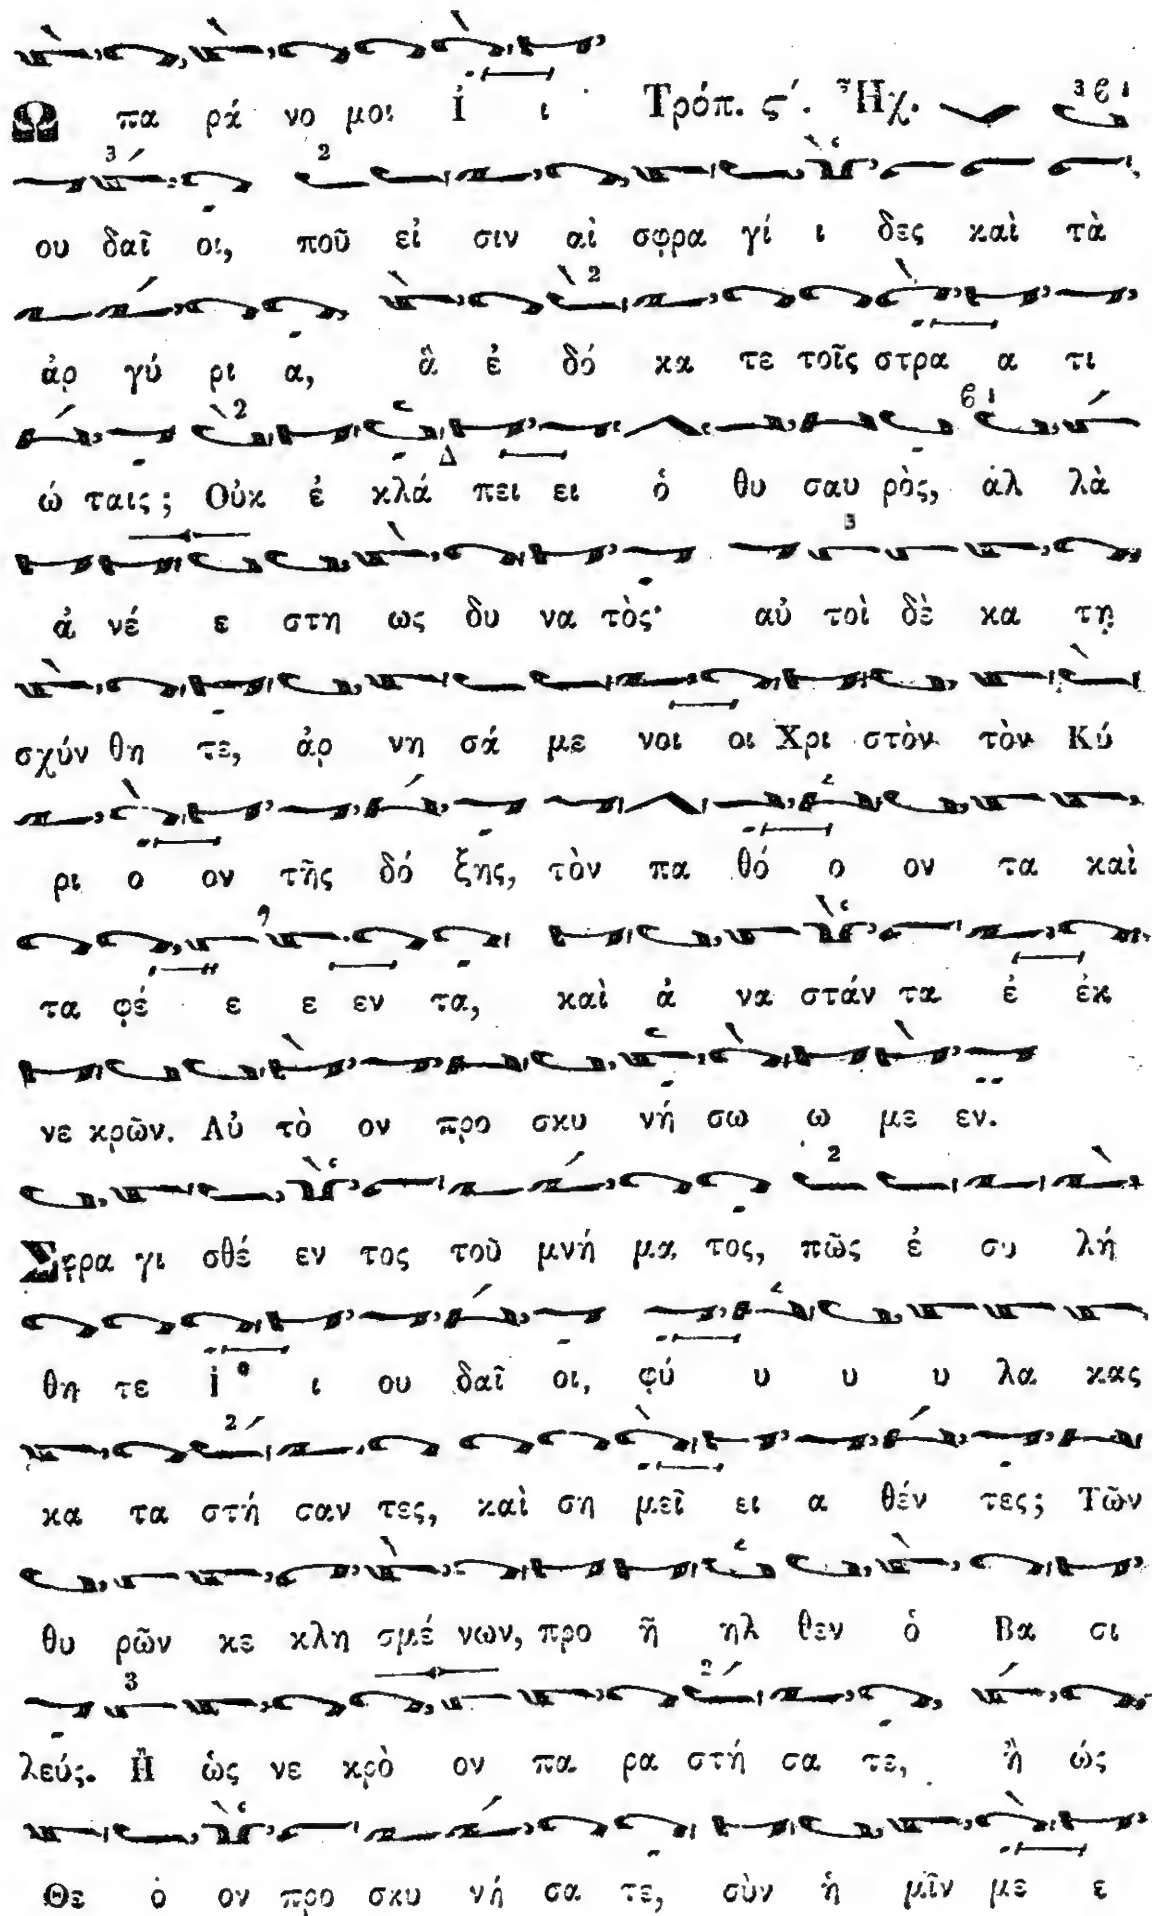 Ω πα ρά νο μοι Ἰ ι Τρόπ. ς΄. Ἦχ.
ου δαῖ οι, ποῦ εἰ σιν αἱ σφρα γί ι δες καὶ τὰ
ἀρ γύ ρι α, ἃ ἐ δό κα τε τοῖς στρα α τι
ώ ταις; Οὐκ ἐ κλά πει ει ὁ θυ σαυ ρὸς, ἀλ λὰ
ἀ νέ ε στη ως δυ να τὸς· αὐ τοὶ δὲ κα τῃ
σχύν θη τε, ἀρ νη σά με νοι οι Χρι στὸν τὸν Κύ
ρι ο ον τῆς δό ξης, τὸν πα θό ο ον τα καὶ
τα φέ ε ε εν τα, καὶ ἀ να στάν τα ἐ ἐκ
νε κρῶν. Αὐ τὸ ον προ σκυ νή σω ω με εν.
Σφρα γι σθέ εν τος τοῦ μνή μα τος, πῶς ἐ συ λή
θη τε Ἰ ι ου δαῖ οι, φύ υ υ υ λα κας
κα τα στή σαν τες, καὶ ση μεῖ ει α θέν τες; Τῶν
θυ ρῶν κε κλη σμέ νων, προ ῆ ηλ θεν ὁ Βα σι
λεύς. Ἢ ὡς νε κρὸ ον πα ρα στή σα τε, ἢ ὡς
Θε ὸ ον προ σκυ νή σα τε, σὺν ἡ μῖν με ε